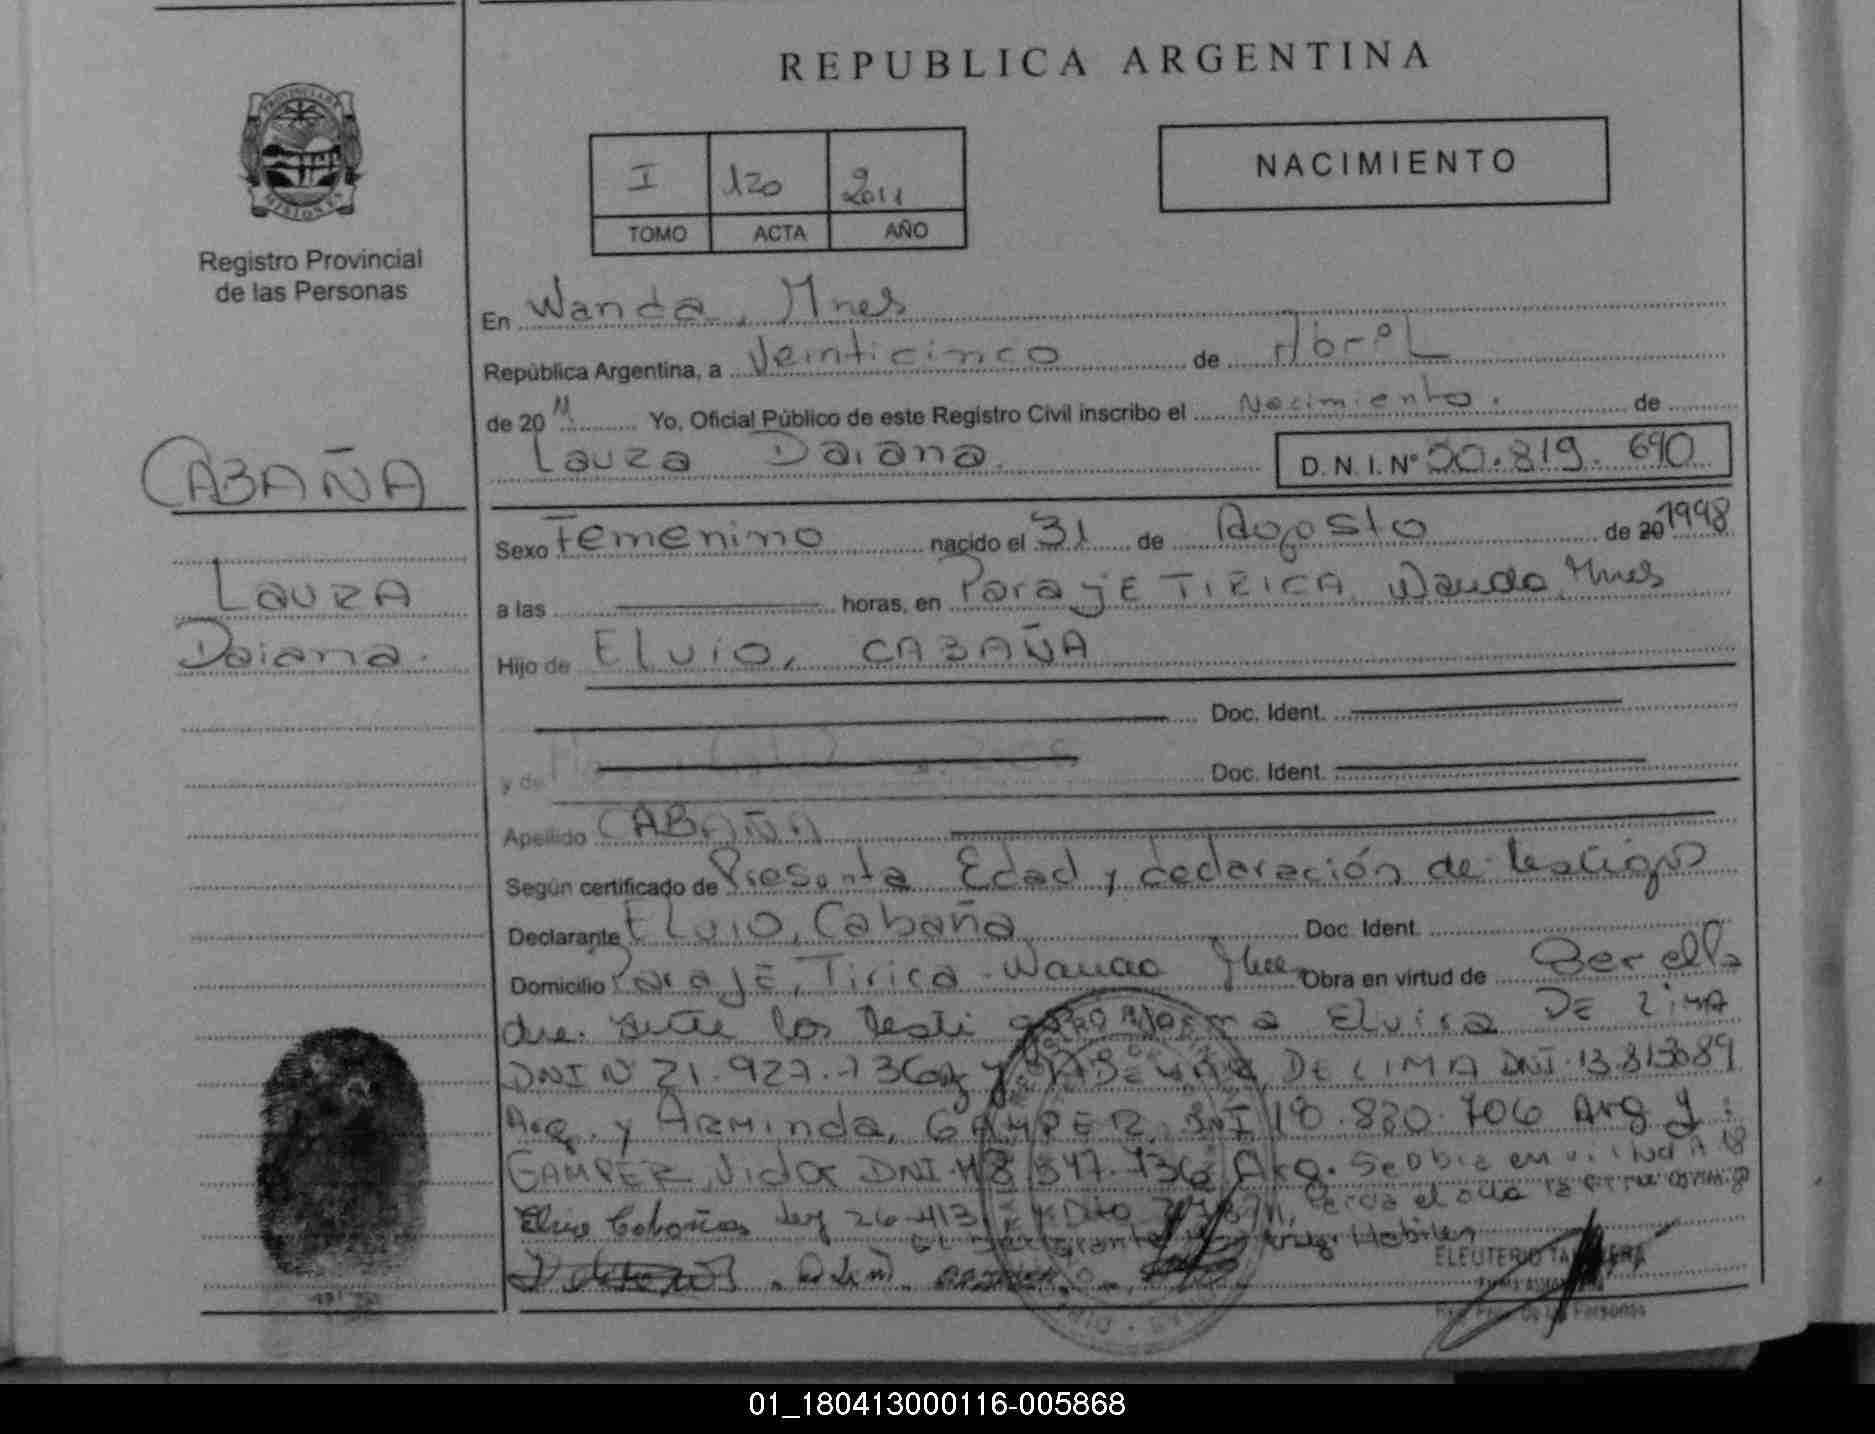 REPUBLICA ARGENTINA
PROVINCIA DE
MISIONES
Registro Provincial
de las Personas
I 120 2011
TOMO ACTA AÑO
NACIMIENTO
En Wanda, Mnes
República Argentina, a Veinticinco de Abril
de 20 11 Yo, Oficial Público de este Registro Civil inscribo el Nacimiento. de
Laura Daiana. D. N. I. Nº 50.819.690
CABAÑA
Laura
Daiana.
Sexo Femenino nacido el 31 de Agosto de 20 1998
a las horas, en Paraje TIRICA, Wanda, Mnes
Hijo de Elvio, CABAÑA
Doc. Ident.
y de Doc. Ident.
Apellido CABAÑA
Según certificado de Presunta Edad y declaración de testigos
Declarante Elvio, Cabaña Doc. Ident.
Domicilio Paraje, Tirica. Wanda Obra en virtud de
los Elvira DE LIMA
DNI Nº 21.927.736 y DE LIMA DNI 13.813.689
Arg. y Arminda, GAMPER, DNI 18.830.706 Arg y:
GAMPER, Vida DNI 18.847.736 Arg. Se
Elvio Cabañas Ley 26.413
ELEUTERIO
de las Personas
01_180413000116-005868